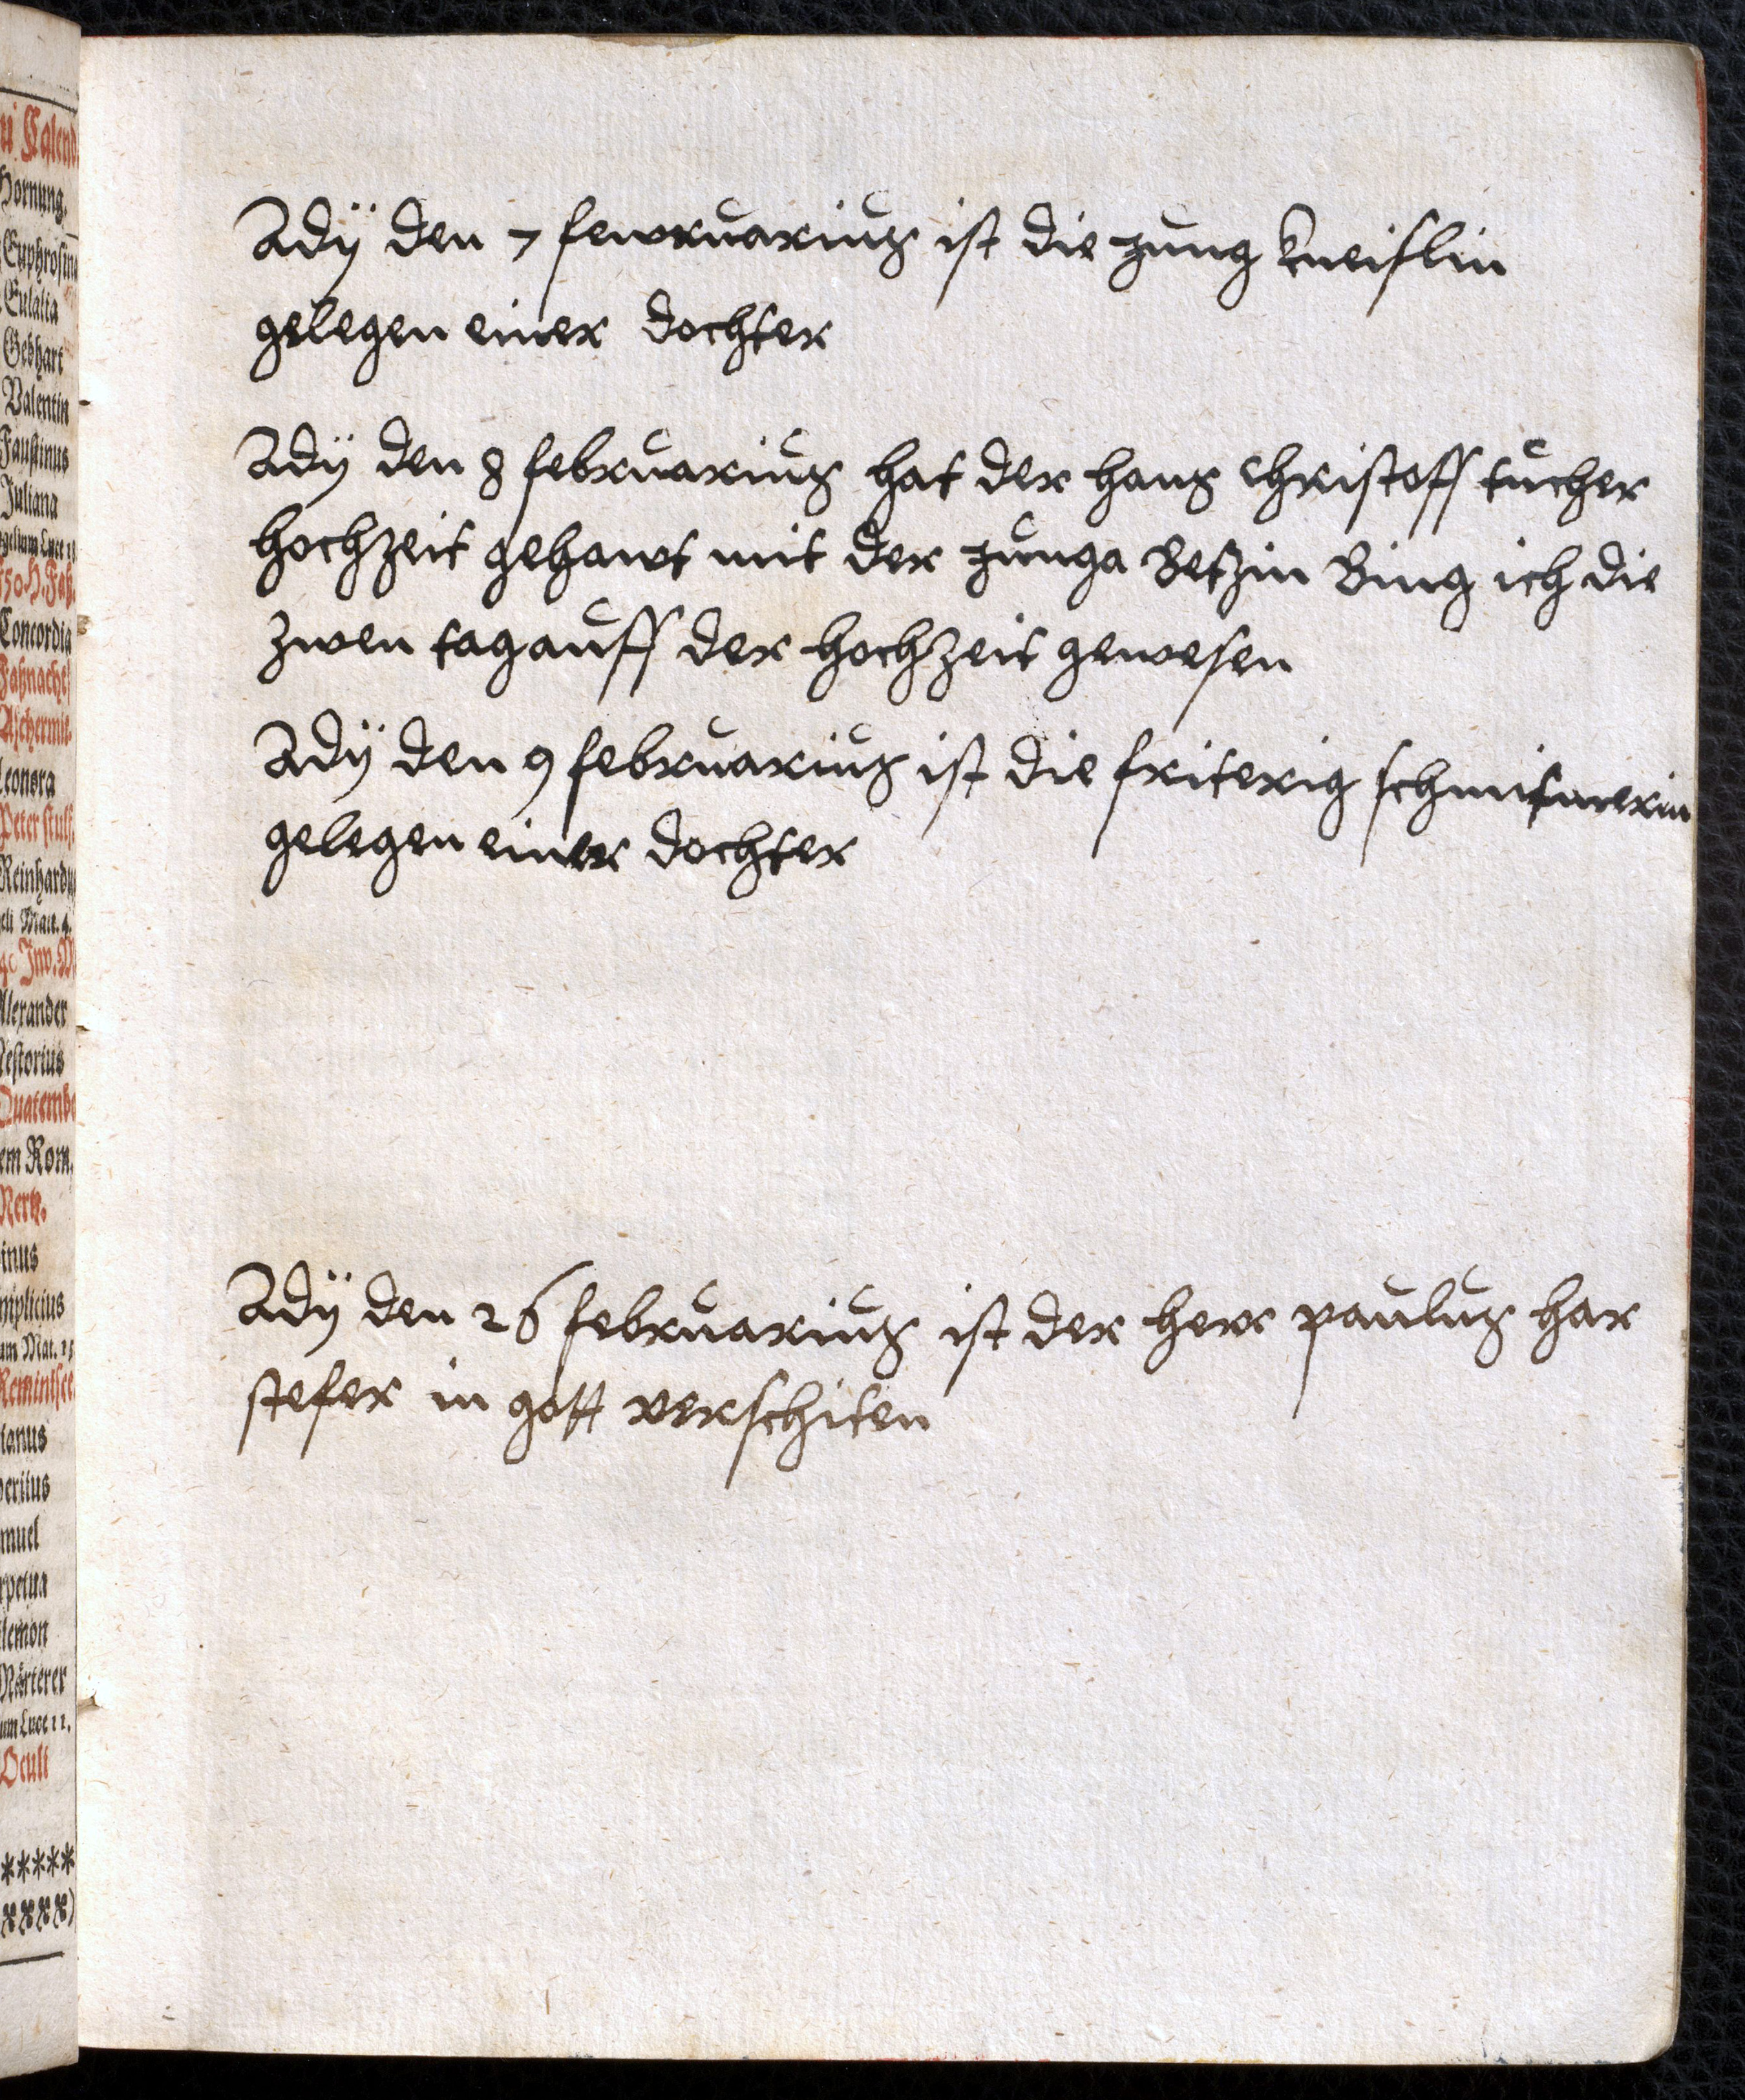 u Calend
Hornung.
Euphrosin
Eulalia
Gebhart
Valentin
Faustinus
Juliana
Concordia
Faßnacht
Aschermit.
Leonora
Peter stulf.
Reinhard
eli Matt. 4.
Alexander
Nestorius
Quatembe
em Rom.
Mertz.
inus
mplicius
um Mat. 15
Reminisce
ianus
eritus
muel
rpetua
lemon
Märterer
um Luce 11.
Oculi
Adÿ den 7 fewruarius ist die jung kneislin
gelegen einer dochter
Adÿ den 8 februarius hat der hans christoff tucher
hochzeit gehawt mit der junga Betzin Bins ich die
zwen tag auff der hochzeit gewesen
Adÿ den 9 februarius ist die friterig schmitmerin
gelegen einer dochter
Adÿ den 26 februarius ist der herr paulus har
stefer in gott verschiten